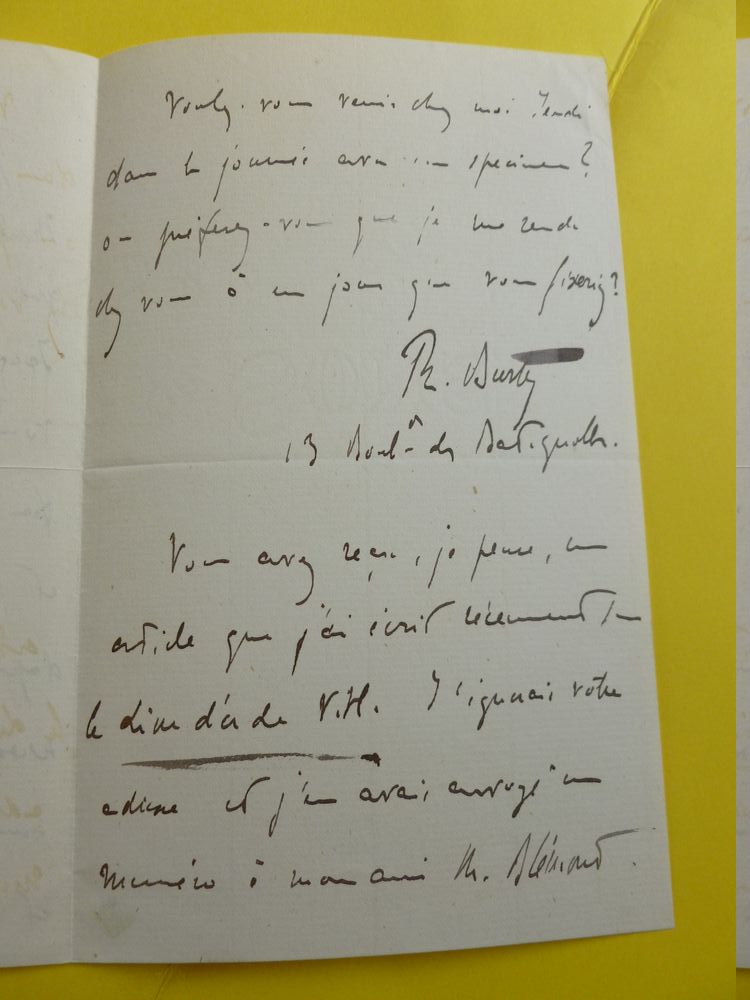 Voulez-vous venir chez moi Jeudi
dans la journée avec un specimen?
ou préferez-vous que je me rende
chez vous à un jour que vous fixeriez?
Ph. Burty
13 Boulд des Batignolles.
Vous avez reçu, je pense, un
article que j'ai écrit récemment sur
le livre d'or de V.H. J'ignorais votre
adresse et j'en avais envoyé un
numéro à mon ami M. Blémont.